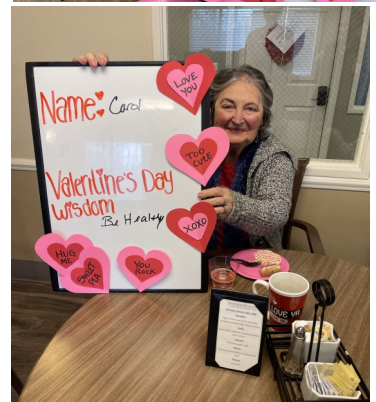 Name: Carol
LOVE
YOU
TOO
CUTE
Valentine's Day
wisdom
Be Healthy
XOXO
HUG
ME
SWEET
PEA
YOU
ROCK
LOVE YA